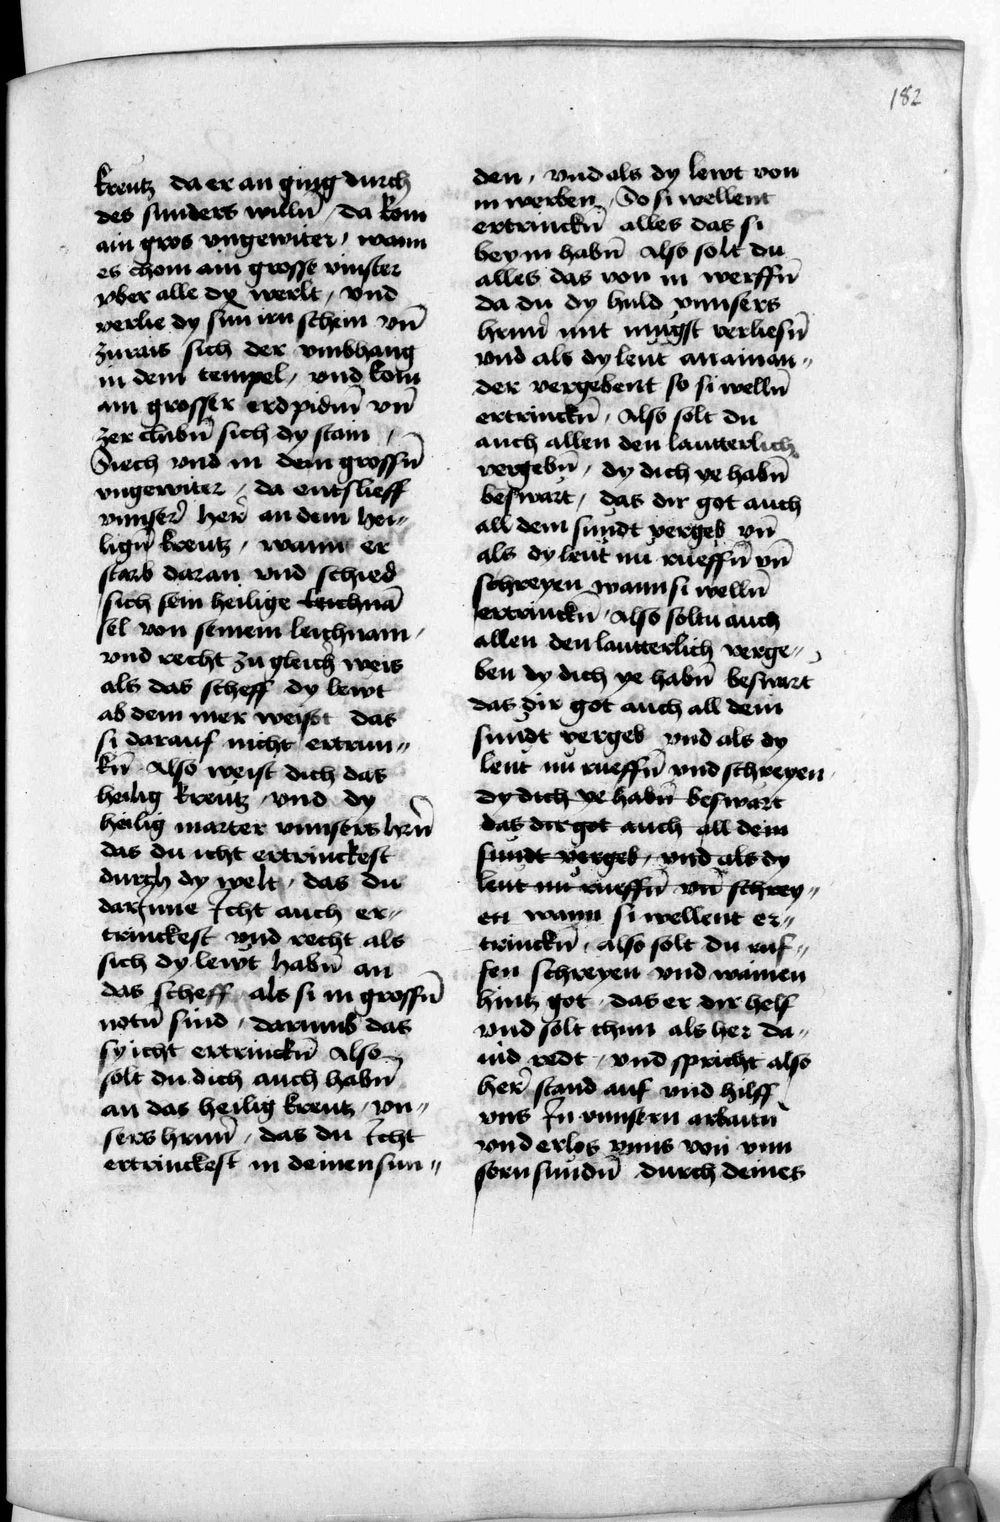 182
kreutz da er an ging durch
des sunders willn̄ / da kom
ain gros vngewiter / wann
es chom ain grosse vinster
vber alle dy werlt / vnd
verlie dy sun irn schein vn̄
zurais sich der vmbhang
in dem tempel / vnd kom
ain grosser erdpidm̄ vn̄
zer clubn̄ sich dy stain /
Siech vnd in dem grossn̄
vngewiter / da entslieff
vnnser̄ her̄ an dem hei〃
lign̄ kreutz / wann er
starb daran vnd schied
sich sein heilige leichnā
sel von seinem leichnam /
vnd recht zu gleich weis
als das scheff dy lewt
ab dem mer weist das
si darauf nicht ertrin〃
kn̄ Also weist dich das
heilig kreutz / vnd dy
heilig marter vnnsers hrn̄
das du icht ertrinckest
durch dy welt / das du
darjnne Jcht auch er〃
trinckest vnd recht als
sich dy lewt habn̄ an
das scheff / als si in grossn̄
notn̄ sind / darumb das
sy icht ertrinckn̄ Also
solt du dich auch habn̄
an das heilig kreutz / vn〃
sers hrnn̄ / das du Jcht
ertrinckest in deinen sun〃
den / vnd als dy lewt von
in werben / So si wellent
ertrinckn̄ alles das si
bey in habn̄ Also solt du
alles das von in werffn̄
da du dy huld vnnsers
hrnn̄ mit mugst verliesn̄
vnd als dy leut an ainan〃
der vergebent so si welln̄
ertrinckn̄ / Also solt du
auch allen den lautterlich
vergebn̄ / dy dich ye habn̄
beswart / das dir got auch
all dem sundt vergeb vn̄
als dy leut nu rueffn̄ vn̄
schreyen wann si welln̄
ertrinckn̄ / Also soltu auch
allen den lautterlich verge〃
ben dy dich ye habn̄ beswart
das dir got auch all dein
sundt vergeb vnd als dy
leut nu rueffn̄ vnd schreyen /
dy dich ye habn̄ beswart
das dir got auch all dein
sundt vergeb / vnd als dy
leut nu rueffn̄ vn̄ schrey〃
en wann si wellent er〃
trinckn̄ / also solt du ruf〃
fen schreyen vnd wainen
hintz got / das er dir helf
vnd solt thun als her da〃
uid redt / vnd spricht also
her̄ stand auf vnd hilff
vns Jn vnnsern arbaitn̄
vnd erlos vnns von vnn
sern sundn̄ durch deines